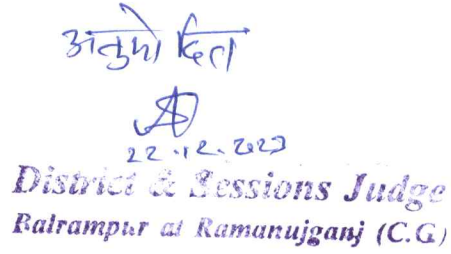 अनुमोदित
22.12.2023
District & Sessions Judge
Balrampur at Ramanujganj (C.G)